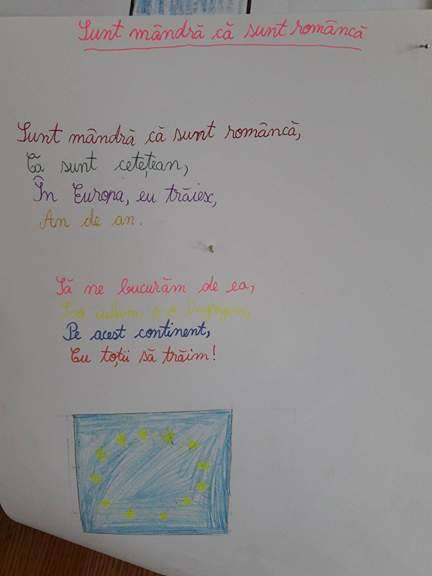 Sunt mândră că sunt româncă
Sunt mândră că sunt româncă,
Că sunt cetețean,
În Europa, eu trăiesc,
An de an.
Să ne bucurăm de ea,
S-o iubim, s-o
Pe acest continent,
Cu toții să trăim!